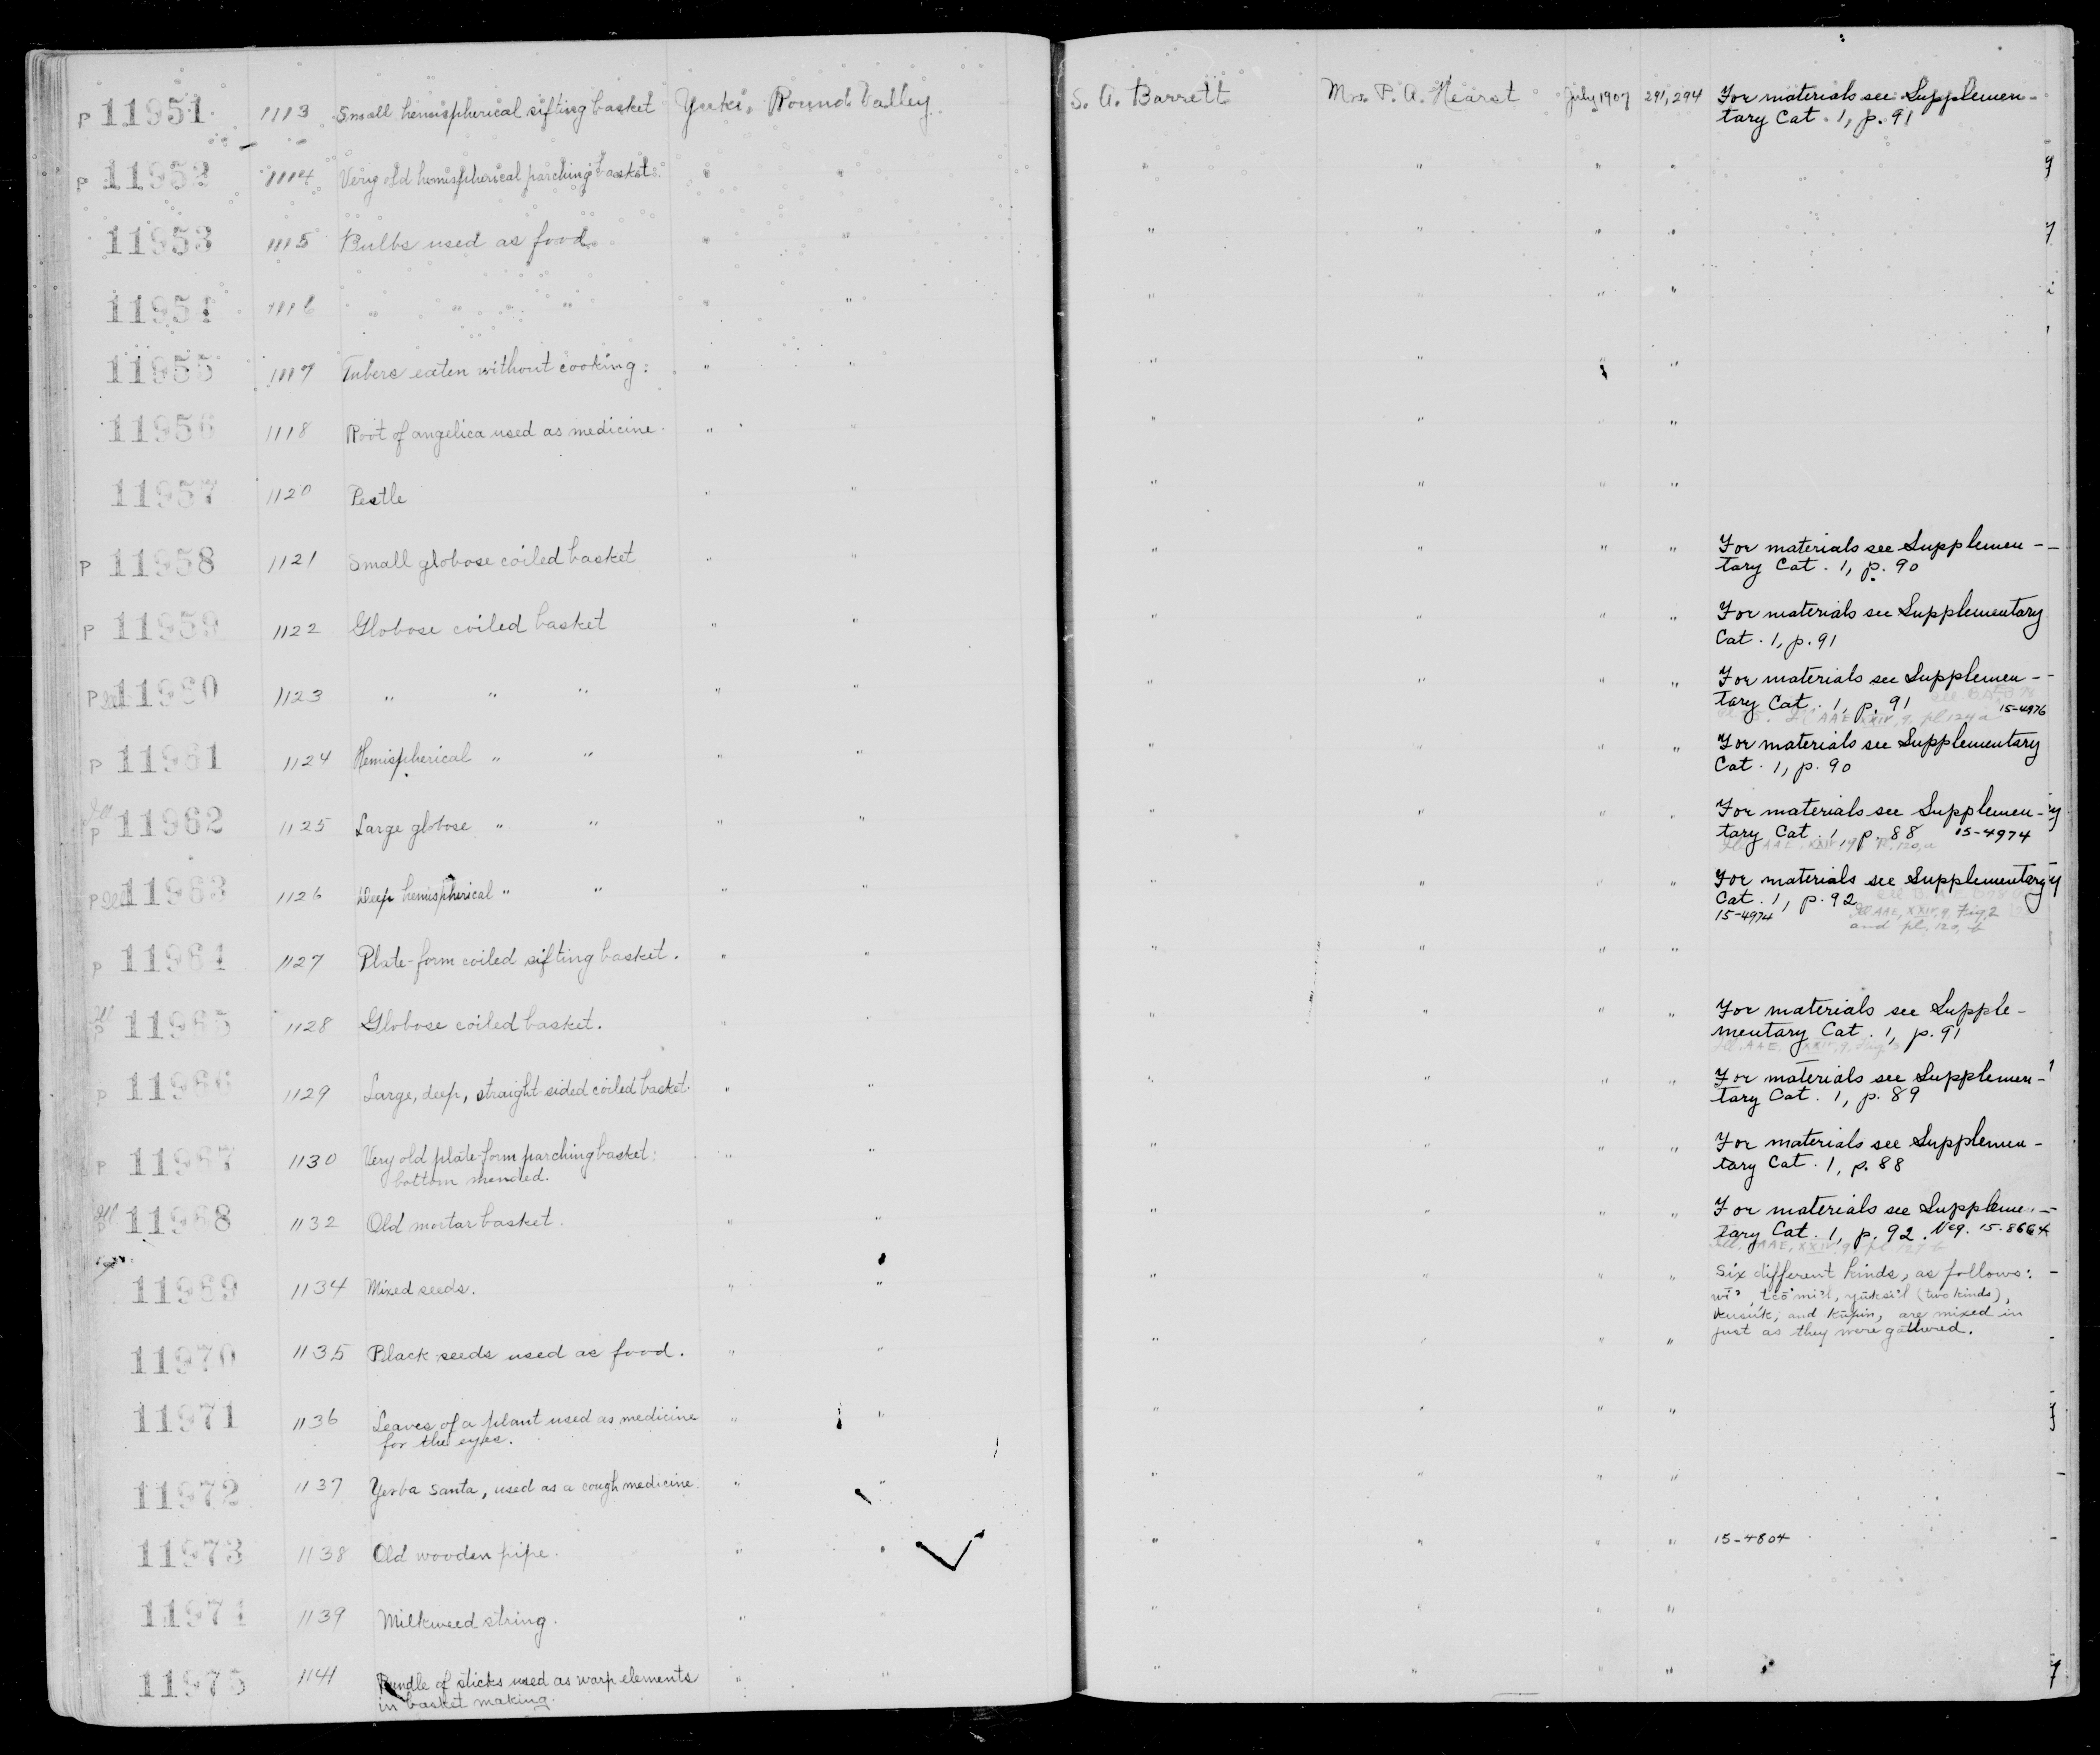 P 11951 1113 Small hemispherical sifting basket Yuki. Round Valley. S. A. Barrett Mrs. P. A. Hearst July 1907 291, 294 For materials see Supplemen-
tary Cat. 1, p. 91
P 11952 1114 Very old hemispherical parching basket. " " " " " "
11953 1115 Bulbs used as food. " " " " " "
11954 1116 " " " " " " " " "
11955 1117 Tubers eaten without cooking. " " " " " "
11956 1118 Root of angelica used as medicine. " " " " "
11957 1120 Pestle " " " " " "
P 11958 1121 Small globose coiled basket " " " " " " For materials see Supplemen-
tary Cat. 1, p. 90
P 11959 1122 Globose coiled basket " " " " " " For materials see Supplementary
Cat. 1, p. 91
P Ill 11960 1123 " " " " " " " " " For materials see Supplemen-
tary Cat. 1, p. 91 15-4976
Ill AAE XXIV, 9, pl 124 a
P 11961 1124 Hemispherical " " " " " " " " For materials see Supplementary
Cat. 1, p. 90
Ill
P 11962 1125 Large globose " " " " " " " " For materials see Supplemen-
tary Cat. 1 p. 88 15-4974
Ill AAE XXIV, 9, Pl. 120, a
P Ill 11963 1126 Deep hemispherical " " " " " " " " For materials see Supplementary
Cat. 1, p. 92
15-4974 Ill AAE, XXIV, 9, Fig. 2
and pl. 120, b
P 11964 1127 Plate-form coiled sifting basket. " " " " " "
Ill
P 11965 1128 Globose coiled basket. " " " " " " For materials see Supple-
mentary Cat. 1, p. 91
Ill. AAE, XXIV, 9, Fig. 3
P 11966 1129 Large, deep, straight sided coiled basket. " " " " " " For materials see Supplemen-
tary Cat. 1, p. 89
P 11967 1130 Very old plate-form parching basket:
bottom mended. " " " " " " For materials see Supplemen-
tary Cat. 1, p. 88
Ill
P 11968 1132 Old mortar basket. " " " " " " For materials see Suppleme-
tary Cat. 1, p. 92. Neg. 15-8664
Ill. AAE, XXIV, 9, pl 127 b
11969 1134 Mixed seeds. " " " " " " Six different kinds, as follows:
(two kinds),
and are mixed in
just as they were gathered.
11970 1135 Black seeds used as food. " " " " " "
11971 1136 Leaves of a plant used as medicine
for the eyes. " " " " " "
11972 1137 Yerba santa, used as a cough medicine. " " " " " "
11973 1138 Old wooden pipe. " " " " " " 15-4804
11974 1139 Milkweed string. " " " " " "
11975 1141 Bundle of sticks used as warp elements
in basket making. " " " " " "